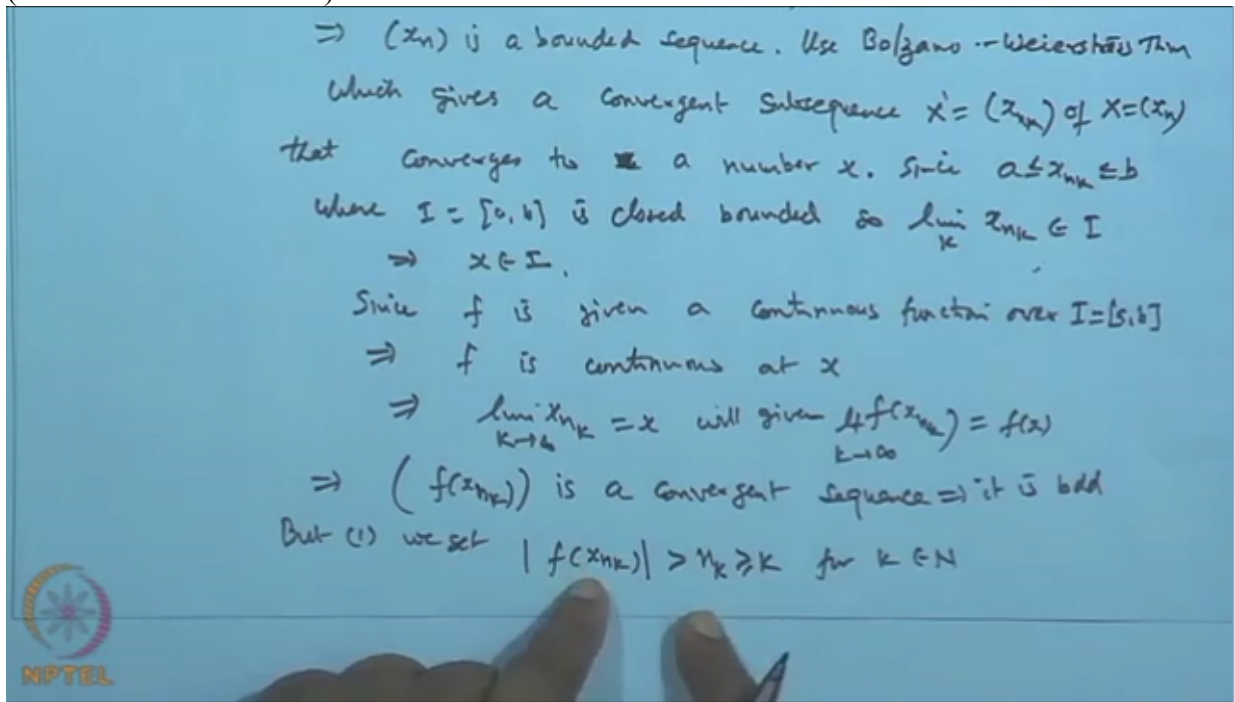 ⇒ (xn) is a bounded sequence. Use Bolzano-Weierstrass Thm
which gives a convergent subsequence X' = (x_{n_k}) of X=(xn)
that converges to a number x. Since a≤x_{n_k}≤b
where I = [a, b] is closed bounded so lim_k x_{n_k} ∈ I
⇒ x ∈ I.
Since f is given a continuous function over I=[a,b]
⇒ f is continuous at x
⇒ lim_{k→∞} x_{n_k} = x will given lt_{k→∞} f(x_{n_k}) = f(x)
⇒ (f(x_{n_k})) is a convergent sequence ⇒ it is bdd
But (1) we get |f(x_{n_k})| > n_k ≥ k for k ∈ N
NPTEL